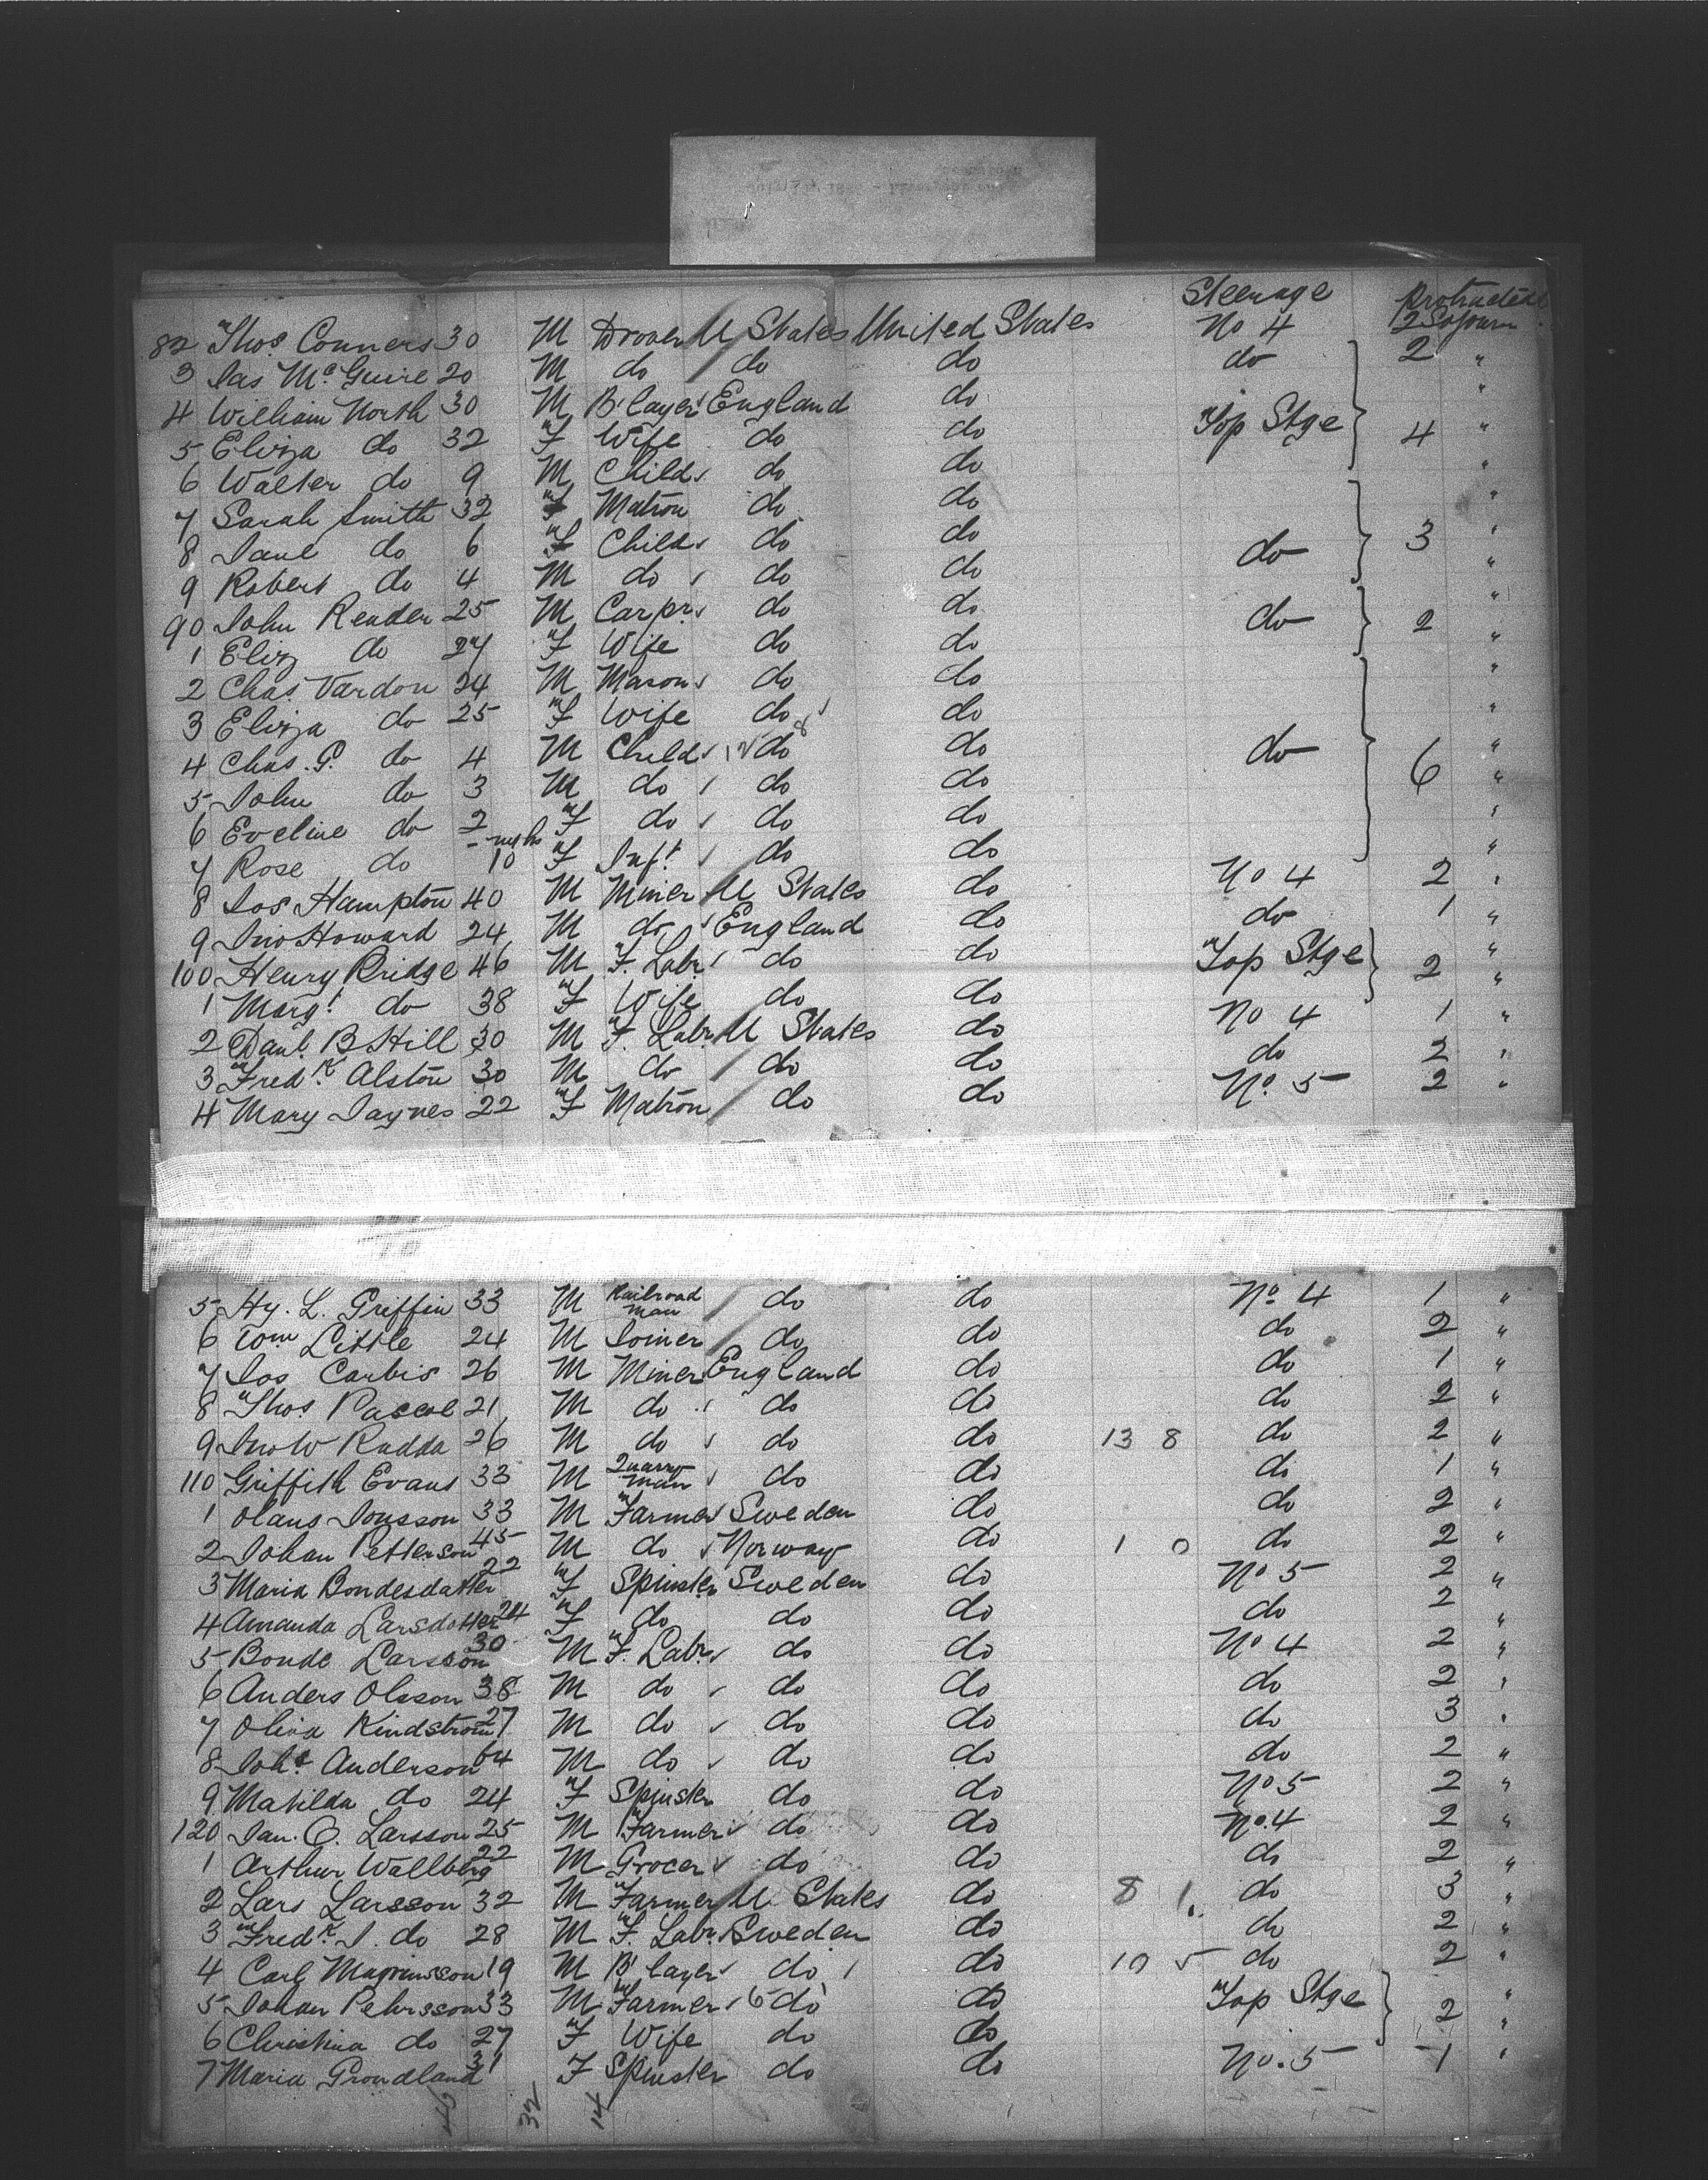 Steerage Protracted
82 Thos. Conners 30 M Drover U States United States No 4 2 Sojourn
3 Jas McGuire 20 M do do do do 2 "
4 William North 30 M B'layer England do "
5 Eliza do 32 F Wife do do Top Stge 4 "
6 Walter do 9 M Child do do "
7 Sarah Smith 32 F Matron do do "
8 Jane do 6 F Child do do do 3 "
9 Robert do 4 M do do do "
90 John Render 25 M Carpr. do do do 2 "
1 Eliz do 27 F Wife do do "
2 Chas. Vardon 24 M Mason do do "
3 Eliza do 25 F Wife do do "
4 Chas. G. do 4 M Child 12 do 8 do do 6 "
5 John do 3 M do do do "
6 Eveline do 2 F do do do "
7 Rose do mths 10 F Inft. do do "
8 Jos Hampton 40 M Miner U States do No 4 2 "
9 Jno Howard 24 M do England do do 1 "
100 Henry Bridge 46 M F. Labr. do do Top Stge 2 "
1 Margt. do 38 F Wife do do "
2 Danl. B Hill 30 M F. Labr. U States do No 4 1 "
3 Fredk. Alston 30 M do do do do 2 "
4 Mary Jaynes 22 F Matron do do No. 5 2 "
5 Hy. L. Griffin 33 M Railroad man do do No. 4 1 "
6 Wm Little 24 M Joiner do do do 2 "
7 Jos Carbis 26 M Miner England do do 1 "
8 Thos. Pascoe 21 M do do do do 2 "
9 Jno W Rudda 26 M do do do 13 8 do 2 "
110 Griffith Evans 33 M Quarry man do do do 1 "
1 Olaus Jonsson 33 M Farmer Sweden do do 2 "
2 Johan Petterson 45 M do Norway do 1 0 do 2 "
3 Maria Bondesdatter 22 F Spinster Sweden do No 5 2 "
4 Amanda Larsdotter 24 F do do do do 2 "
5 Bonde Larsson 30 M F. Labr. do do No 4 2 "
6 Anders Olsson 38 M do do do do 2 "
7 Oliva Kindstrom 27 M do do do do 3 "
8 Joh. Anderson 64 M do do do do 2 "
9 Matilda do 24 F Spinster do do No 5 2 "
120 Jan. O. Larsson 25 M Farmer do do No. 4 2 "
1 Arthur Wallberg 22 M Grocer do do do 2 "
2 Lars Larsson 32 M Farmer U States do 8 1 do 3 "
3 Fredk. J. do 28 M F. Labr. Sweden do do 2 "
4 Carl Magnusson 19 M B'layer do do 10 5 do 2 "
5 Johan Pehrsson 33 M Farmer 6 do do Top Stge 2 "
6 Christina do 27 F Wife do do "
7 Maria Grondland 31 F Spinster do do No. 5 1 "
32 14